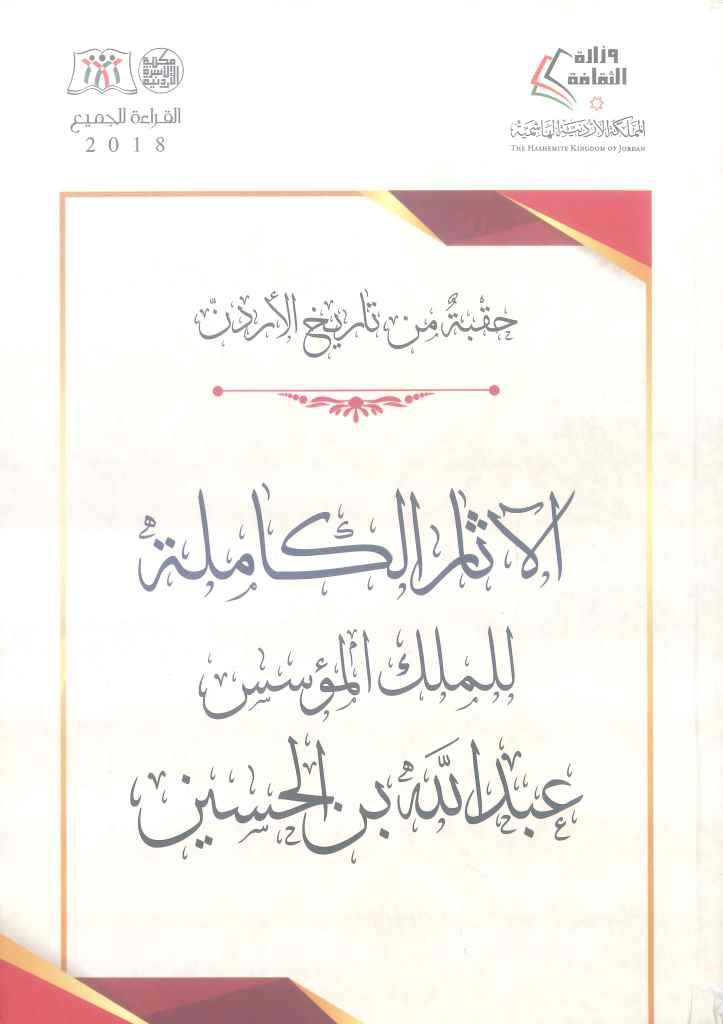 وزارة
الثقافة
المملكة الأردنية الهاشمية
THE HASHEMITE KINGDOM OF JORDAN
مكتبة
الأسرة
الأردنية
القراءة للجميع
2018
حقبةٌ من تاريخ الأردنّ
الآثار الكاملة
للملك المؤسس
عبدالله بن الحسين